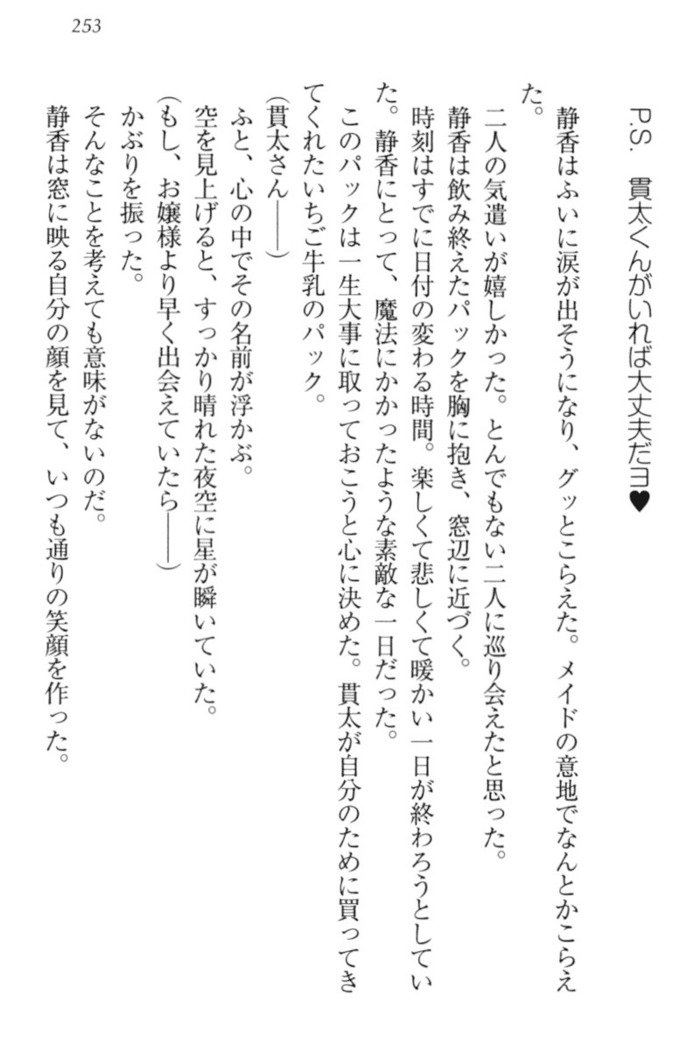 253
P.S.　貫太くんがいれば大丈夫だヨ♥
静香はふいに涙が出そうになり、グッとこらえた。メイドの意地でなんとかこらえ
た。
二人の気遣いが嬉しかった。とんでもない二人に巡り会えたと思った。
静香は飲み終えたパックを胸に抱き、窓辺に近づく。
時刻はすでに日付の変わる時間。楽しくて悲しくて暖かい一日が終わろうとしてい
た。静香にとって、魔法にかかったような素敵な一日だった。
このパックは一生大事に取っておこうと心に決めた。貫太が自分のために買ってき
てくれたいちご牛乳のパック。
(貫太さん――)
ふと、心の中でその名前が浮かぶ。
空を見上げると、すっかり晴れた夜空に星が瞬いていた。
(もし、お嬢様より早く出会えていたら――)
かぶりを振った。
そんなことを考えても意味がないのだ。
静香は窓に映る自分の顔を見て、いつも通りの笑顔を作った。